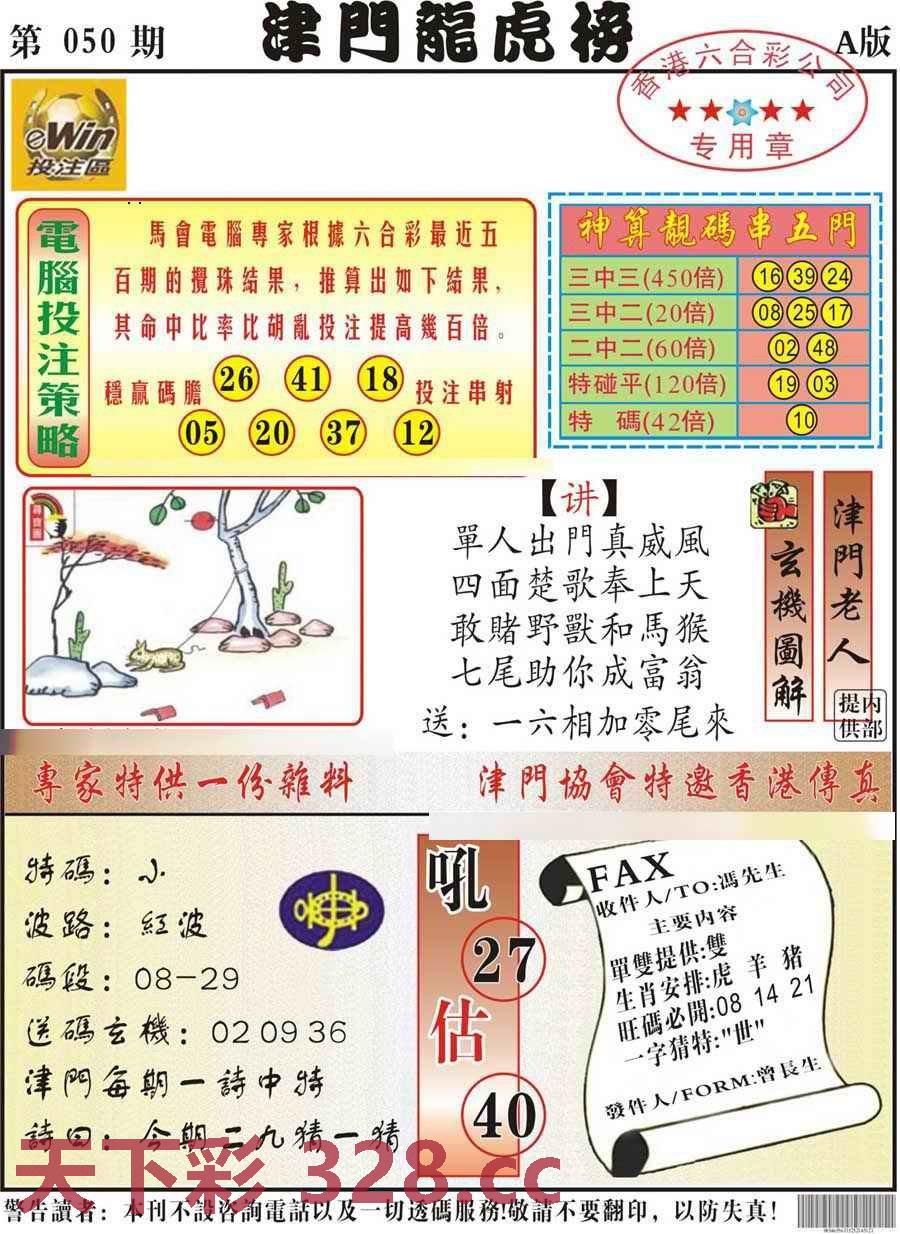 第 050 期
津門龍虎榜
A版
香港六合彩公司
专用章
eWin
投注區
電腦投注策略
馬會電腦專家根據六合彩最近五
百期的攪珠結果，推算出如下結果，
其命中比率比胡亂投注提高幾百倍。
穩贏碼膽 26 41 18 投注串射
05 20 37 12
神算靚碼串五門
三中三(450倍) 16 39 24
三中二(20倍) 08 25 17
二中二(60倍) 02 48
特碰平(120倍) 19 03
特 碼(42倍) 10
尋寶圖
【讲】
單人出門真威風
四面楚歌奉上天
敢賭野獸和馬猴
七尾助你成富翁
送：一六相加零尾來
玄機圖解
津門老人
内部提供
專家特供一份雜料
津門協會特邀香港傳真
特碼：小
波路：紅波
碼段：08-29
送碼玄機：02 09 36
津門每期一詩中特
詩曰：今期二九猜一猜
吼
27
估
40
FAX
收件人/TO:馮先生
主要内容
單雙提供:雙
生肖安排:虎 羊 猪
旺碼必開:08 14 21
一字猜特:"世"
發件人/FORM:曾長生
天下彩 328.cc
警告讀者：本刊不設咨詢電話以及一切透碼服務!敬請不要翻印，以防失真!